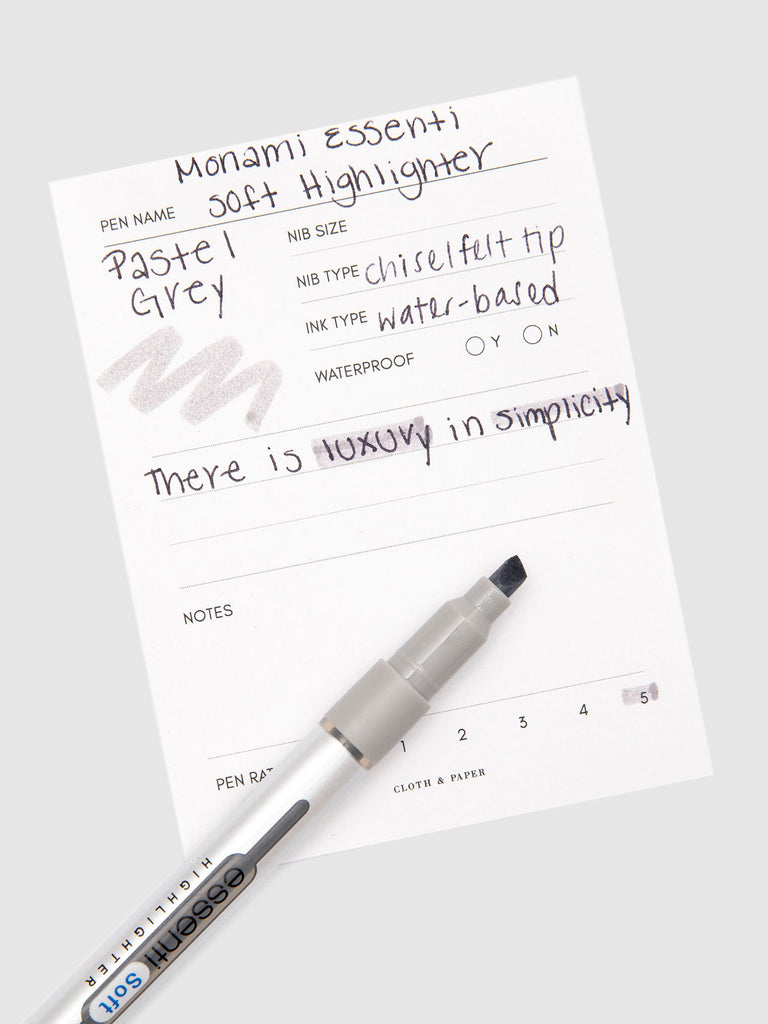 Monami Essenti
PEN NAME Soft Highlighter
Pastel
Grey
NIB SIZE
NIB TYPE chisel felt tip
INK TYPE water-based
WATERPROOF Y N
There is luxury in simplicity
NOTES
PEN RAT 1 2 3 4 5
CLOTH & PAPER
essenti Soft
HIGHLIGHTER